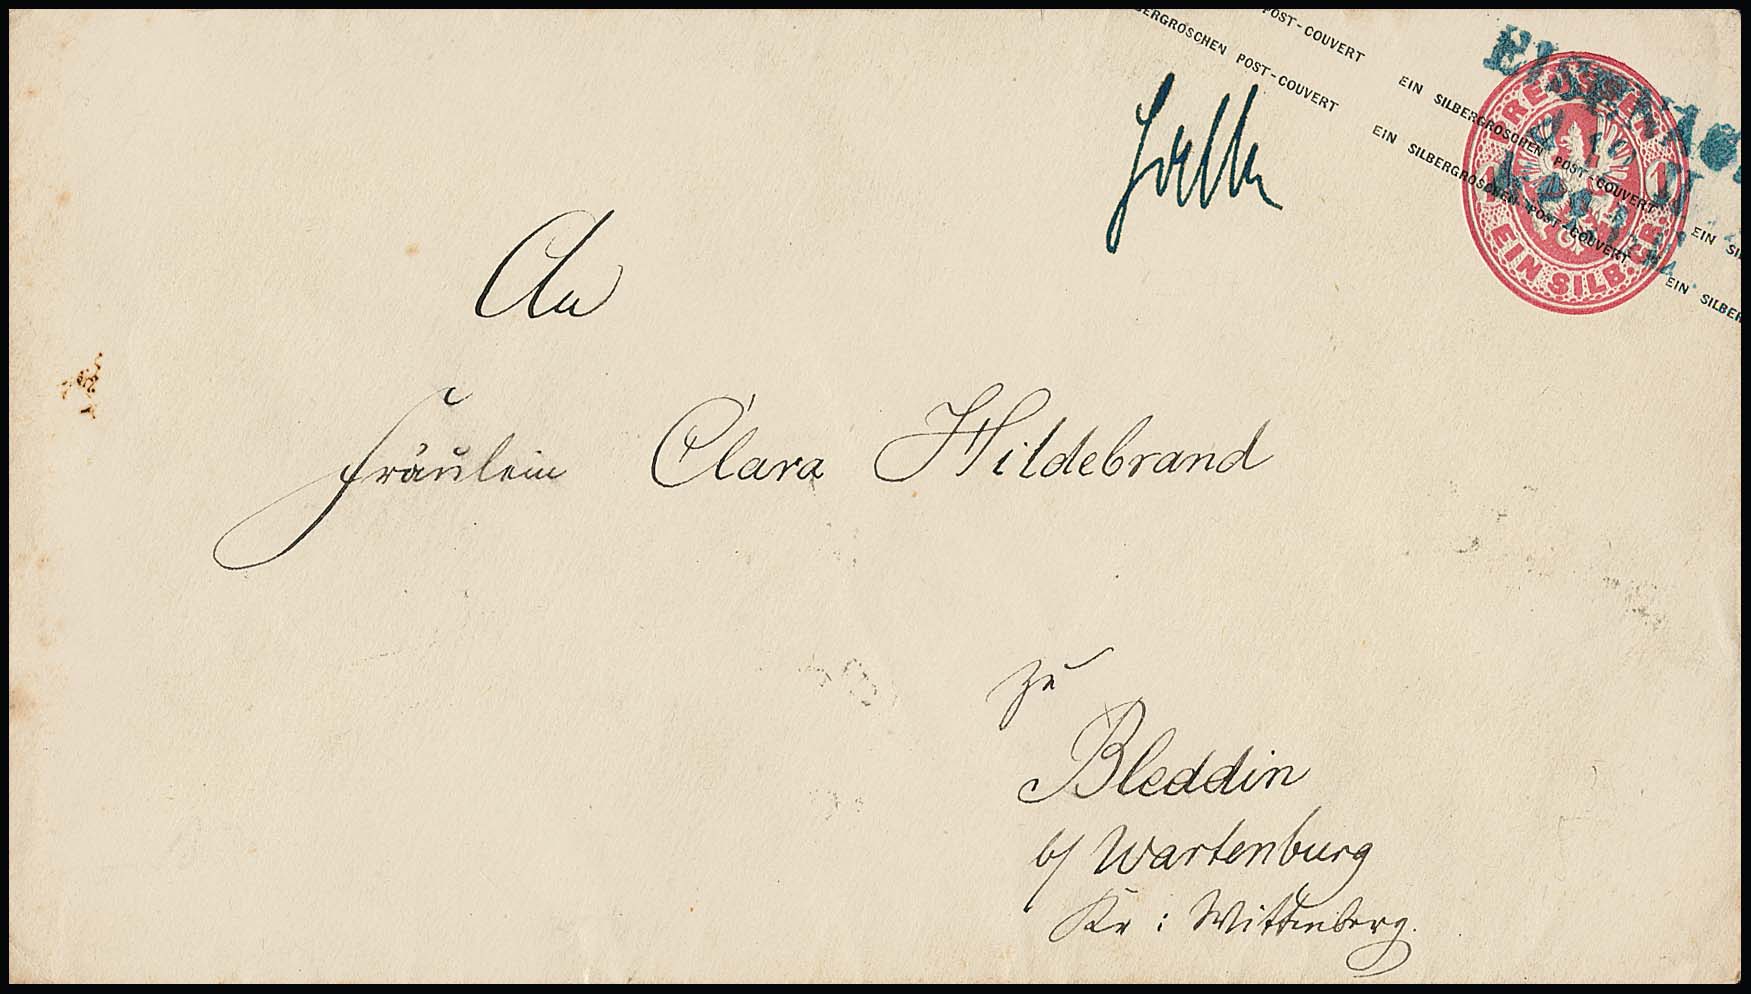 POST-COUVERT EIN SILBERGROSCHEN POST-COUVERT EIN
BERGROSCHEN POST-COUVERT EIN SILBERGROSCHEN POST-COUVERT EIN SILBER
PREUSSEN
1 1
EIN SILB. GR.
Halle
An
Fräulein Clara Hildebrand
zu
Bleddin
b/ Wartenburg
Kr: Wittenberg.